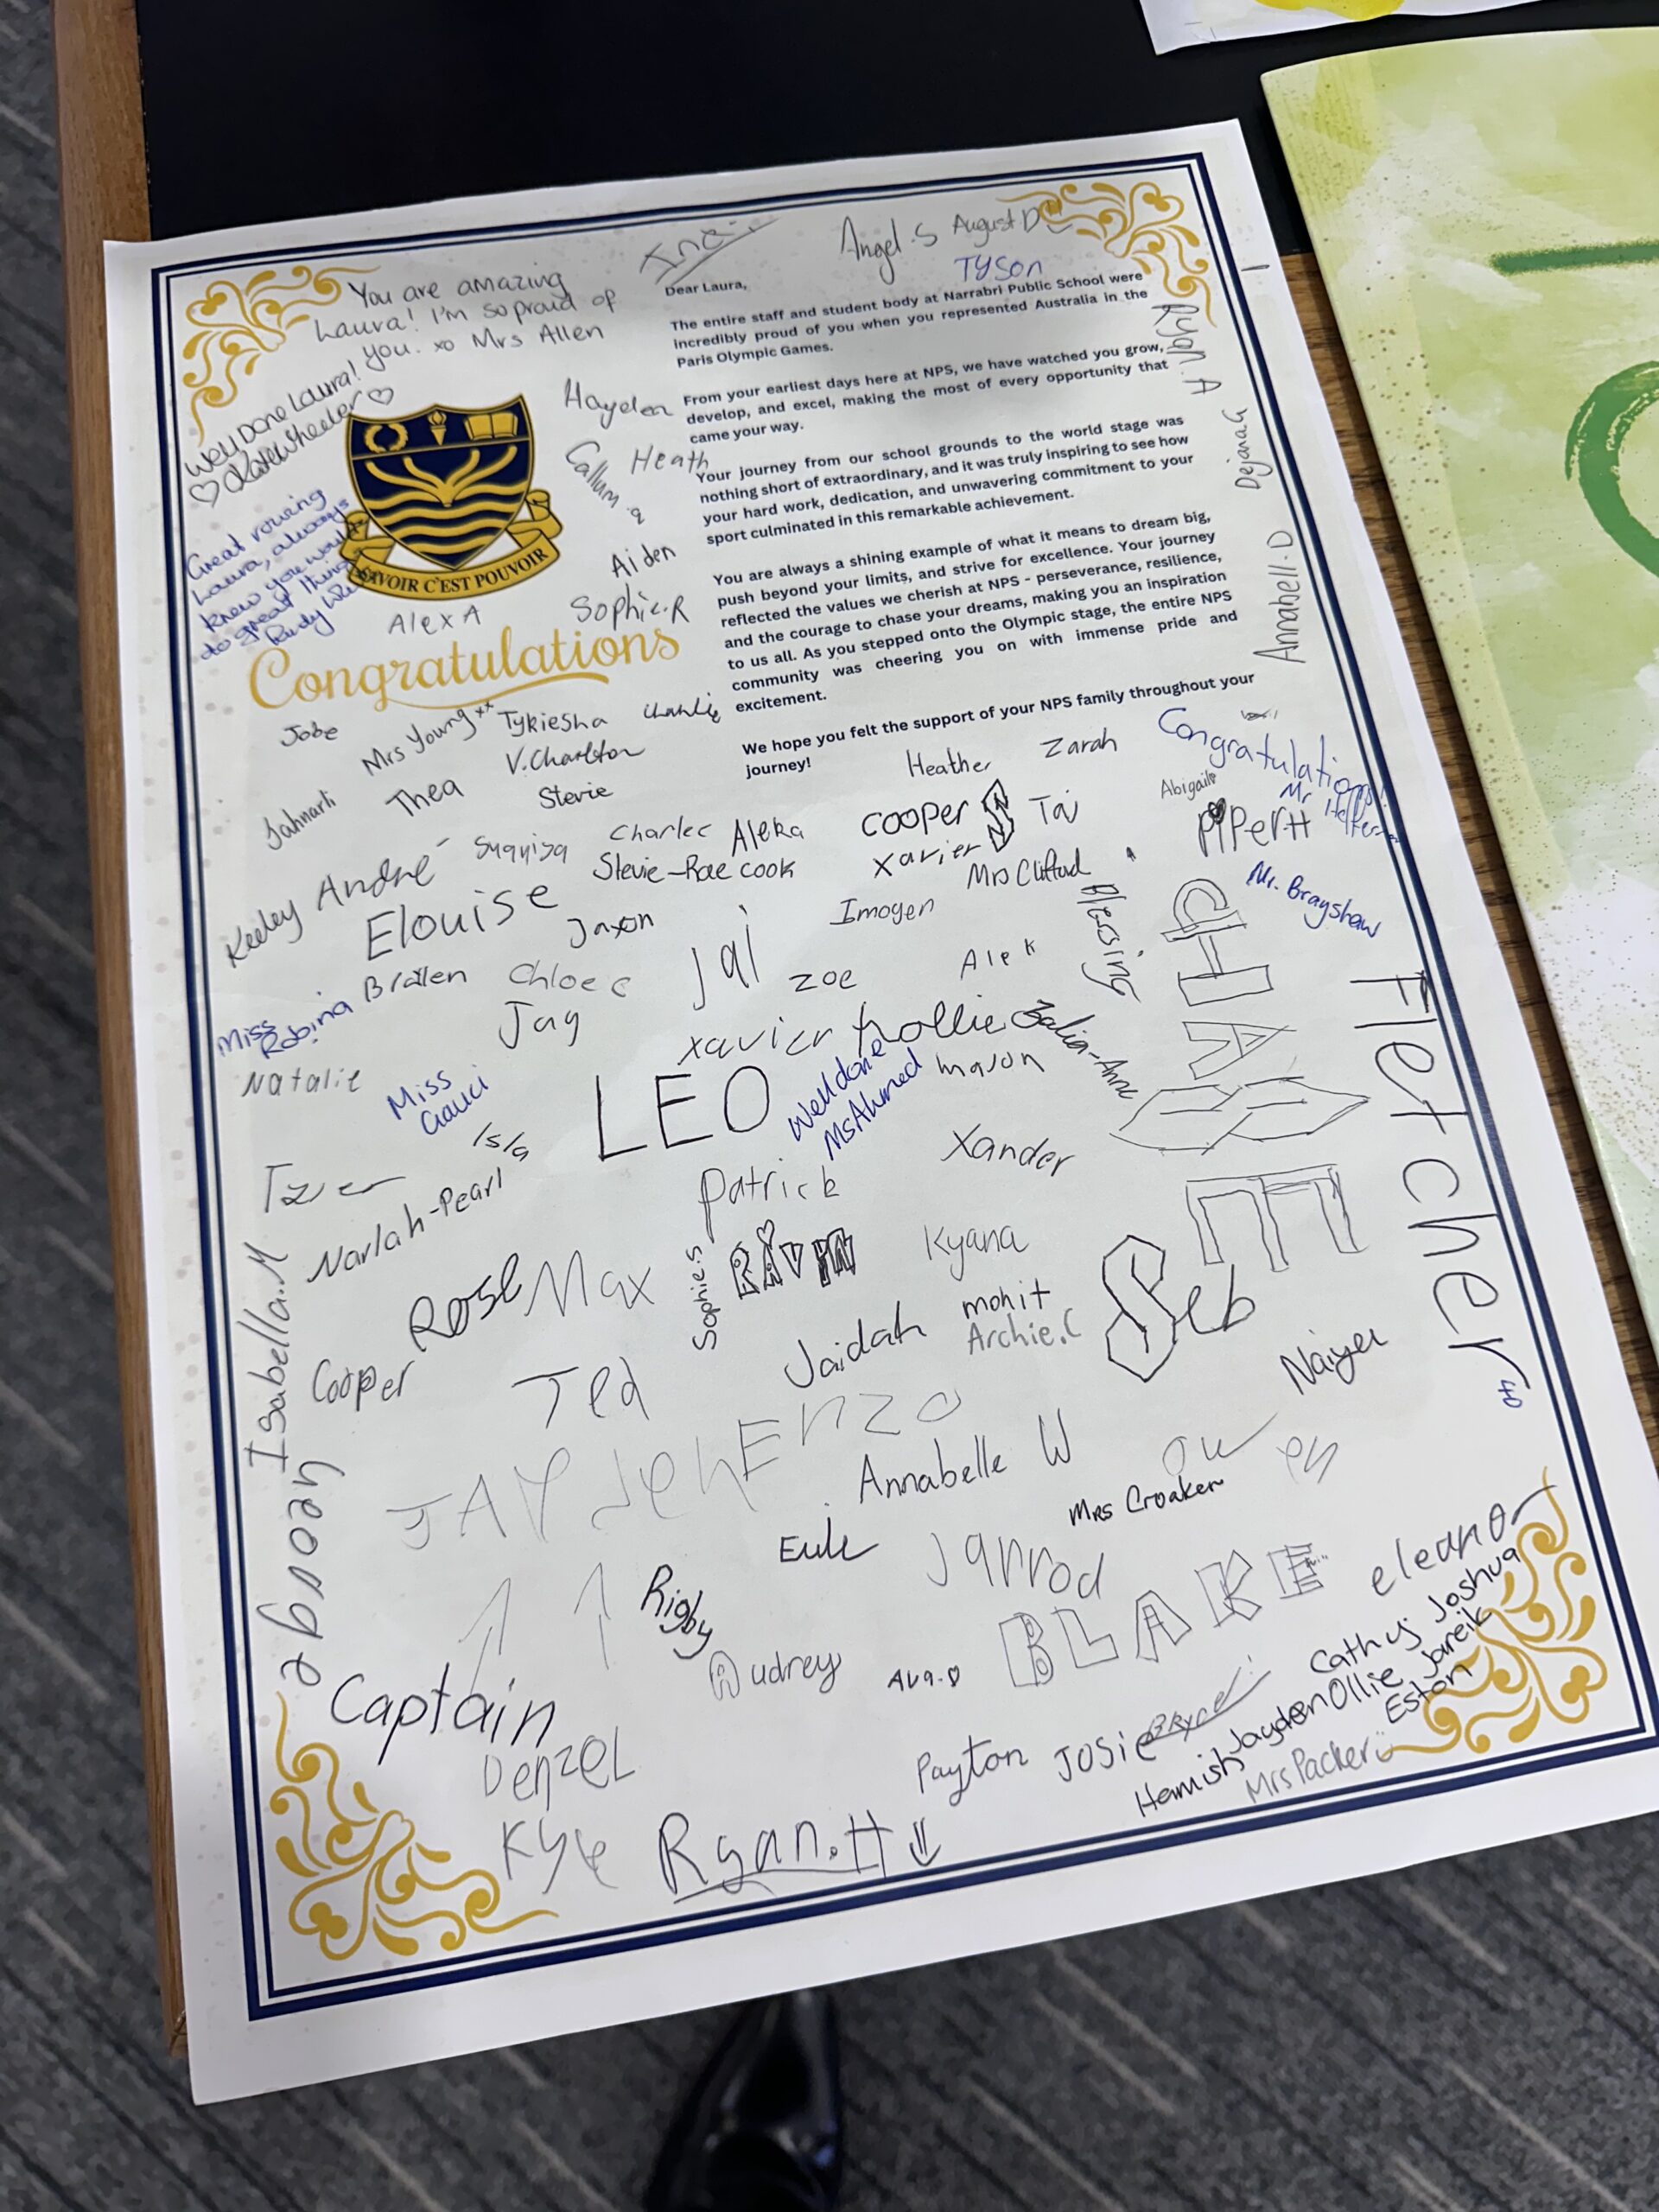 Angel.S August D
TYSON
You are amazing
Laura! I'm so proud of
you. xo Mrs Allen
Well Done Laura!
♡ Kate Wheeler ♡
Great rowing
Laura, always
knew you would
do great things
SAVOIR C'EST POUVOIR
Congratulations
Dear Laura,
The entire staff and student body at Narrabri Public School were
incredibly proud of you when you represented Australia in the
Paris Olympic Games.
From your earliest days here at NPS, we have watched you grow,
develop, and excel, making the most of every opportunity that
came your way.
Your journey from our school grounds to the world stage was
nothing short of extraordinary, and it was truly inspiring to see how
your hard work, dedication, and unwavering commitment to your
sport culminated in this remarkable achievement.
You are always a shining example of what it means to dream big,
push beyond your limits, and strive for excellence. Your journey
reflected the values we cherish at NPS - perseverance, resilience,
and the courage to chase your dreams, making you an inspiration
to us all. As you stepped onto the Olympic stage, the entire NPS
community was cheering you on with immense pride and
excitement.
We hope you felt the support of your NPS family throughout your
journey!
Hayden
Callum
Heath
Aiden
Sophie.R
Alex A
Ryan. A
Dejana.G
Annabell.D
Jobe
Mrs Young xx
Tykiesha
Charlie
V.Charlton
Thea
Stevie
Jahnarli
Heather
Zarah
Congratulations!
Abigail
PiPer H
Mr. Brayshaw
Cooper
Taj
Xavier
Mrs Clifford
Aleka
Stevie-Rae cook
André
Keeley
Elouise
Jaxon
Imogen
Blessing
Jai
Zoe
Alek
Chloe C
Jay
Miss
Robina
Natalie
Miss
Gauci
Isla
xavier
Hollie
mason
LEO
Well done
Ms Ahmed
Xander
Fletcher
Patrick
Narlah-Pearl
Isabella.M
Rose
Max
Sophie.S
Kyana
mohit
Archie.C
Seb
Cooper
Ted
Jaidah
Naiyer
George
JAY
Enzo
Annabelle W
Owen
Mrs Croaker
Jarrod
Rigby
Audrey
BLAKE
eleanor
Captain
Denzel
Kyle
Ryan.H
Payton
Josie
Cathy J
Joshua
Jayden
Ollie
Jareik
Eston
Hamish
Mrs Packer